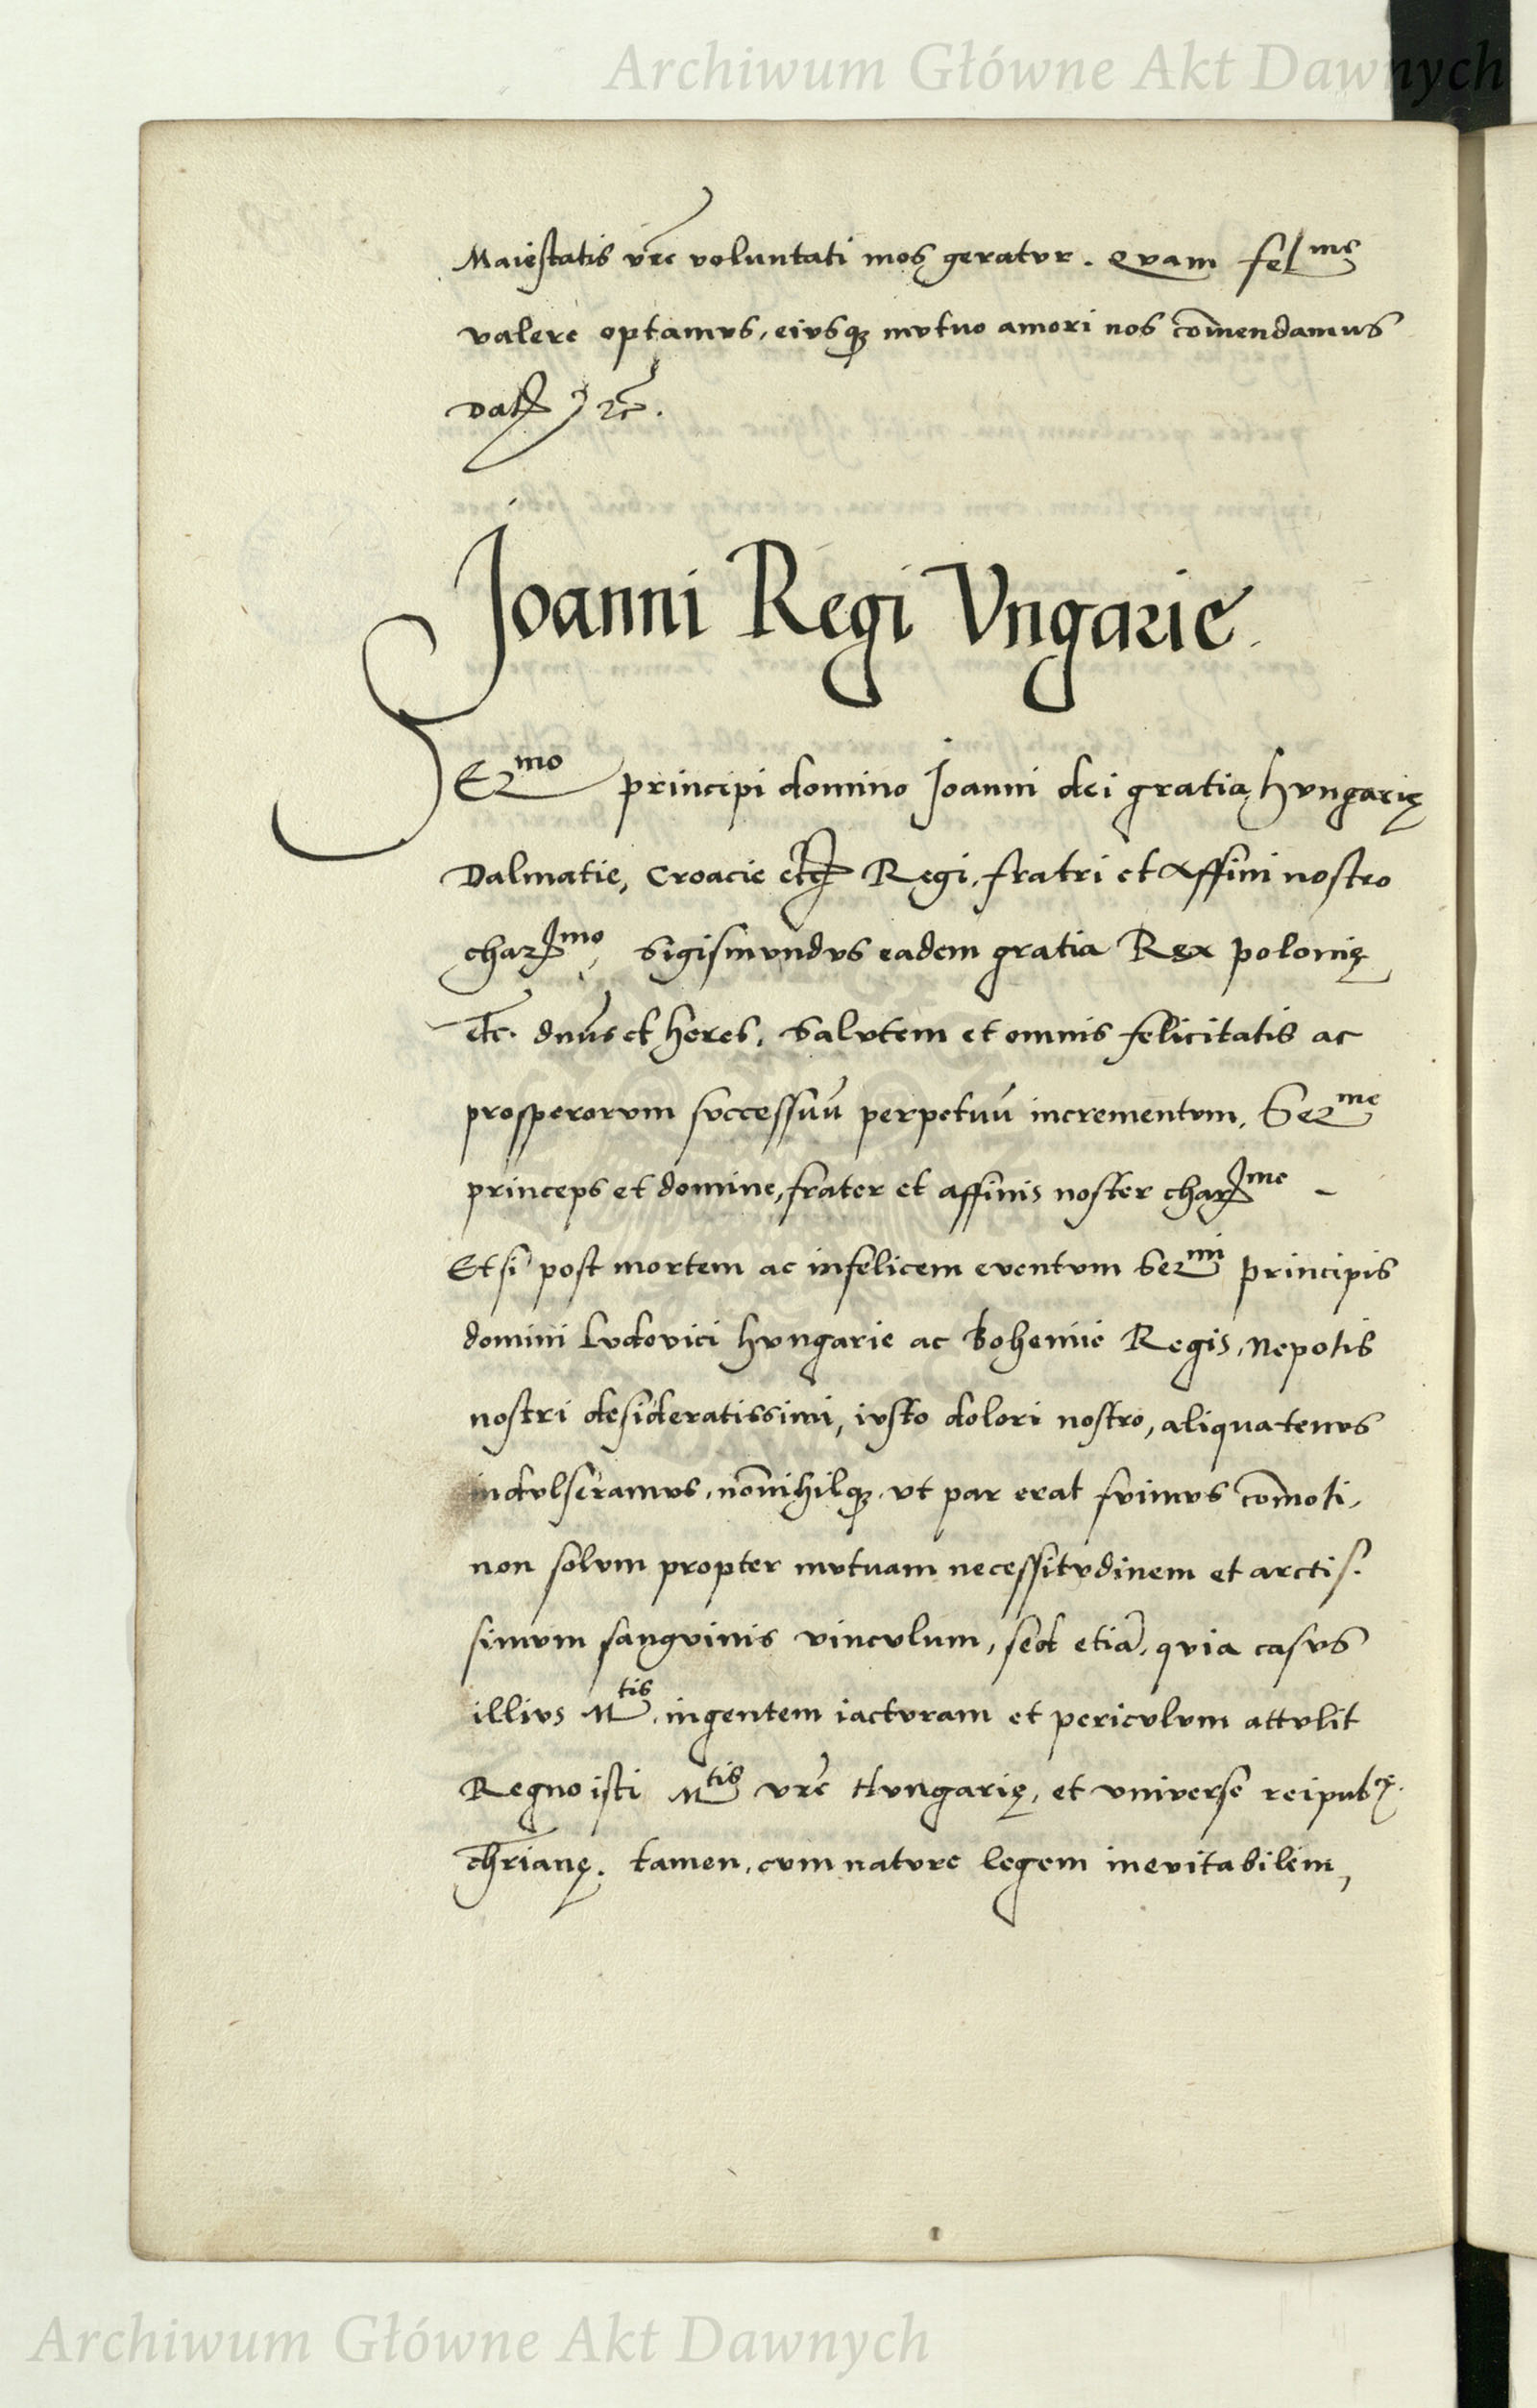 Archiwum Główne Akt Dawnych
Maiestatis vrẽ voluntati mos geratvr. Qvam fel^me
valere optamvs, eivsq₃ mvtuo amori nos com̃endamus
Dat etc.
Joanni Regi Vngarie.
SEr^mo principi domino Joanni dei gratia Hvngarię
Dalmatie, Croacie etc Regi, fratri et Affini nostro
char^mo, Sigismvndvs eadem gratia Rex polonię
etc. dnũs et heres, Salvtem et omnis felicitatis ac
prosperorvm svccessuũ perpetuũ incrementvm, Ser^me
princeps et domine, frater et affinis noster char^me -
Etsi post mortem ac infelicem eventvm Ser^mi principis
domini Lvdovici hvngarie ac Bohemie Regis, Nepotis
nostri desideratissimi, ivsto dolori nostro, aliquatenvs
indvlseramvs, nõnihilq₃, vt par erat fvimvs com̃oti,
non solvm propter mvtuam necessitvdinem et arctis.
simvm sangvinis vincvlum, sed etiã, qvia casvs
illivs M^tis, ingentem iactvram et pericvlvm attvlit
Regno isti M^tis vrẽ Hvngarię, et vniverse reipub^ce.
chr̃ianę. tamen, cvm natvre legem inevitabilem,
Archiwum Główne Akt Dawnych